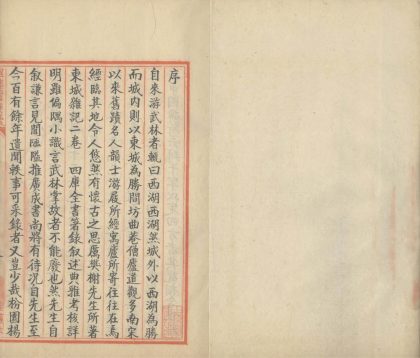 序
自來游武林者輒曰西湖西湖然城外以西湖為勝
而城内則以東城為勝間坊曲巷僧廬道觀多南宋
以來舊蹟名人韻士游屐所經寓廬所寄往往在焉
經臨其地令人悠然有懷古之思厲樊榭先生所著
東城雜記二卷 四庫全書著錄叙述典雅考核詳
明雖偏隅小識言武林掌故者不能廢也然先生自
叙謙言見聞陋隘推廣成書尚將有待況自先生至
今百有餘年遺聞軼事可采錄者又豈少哉松園楊